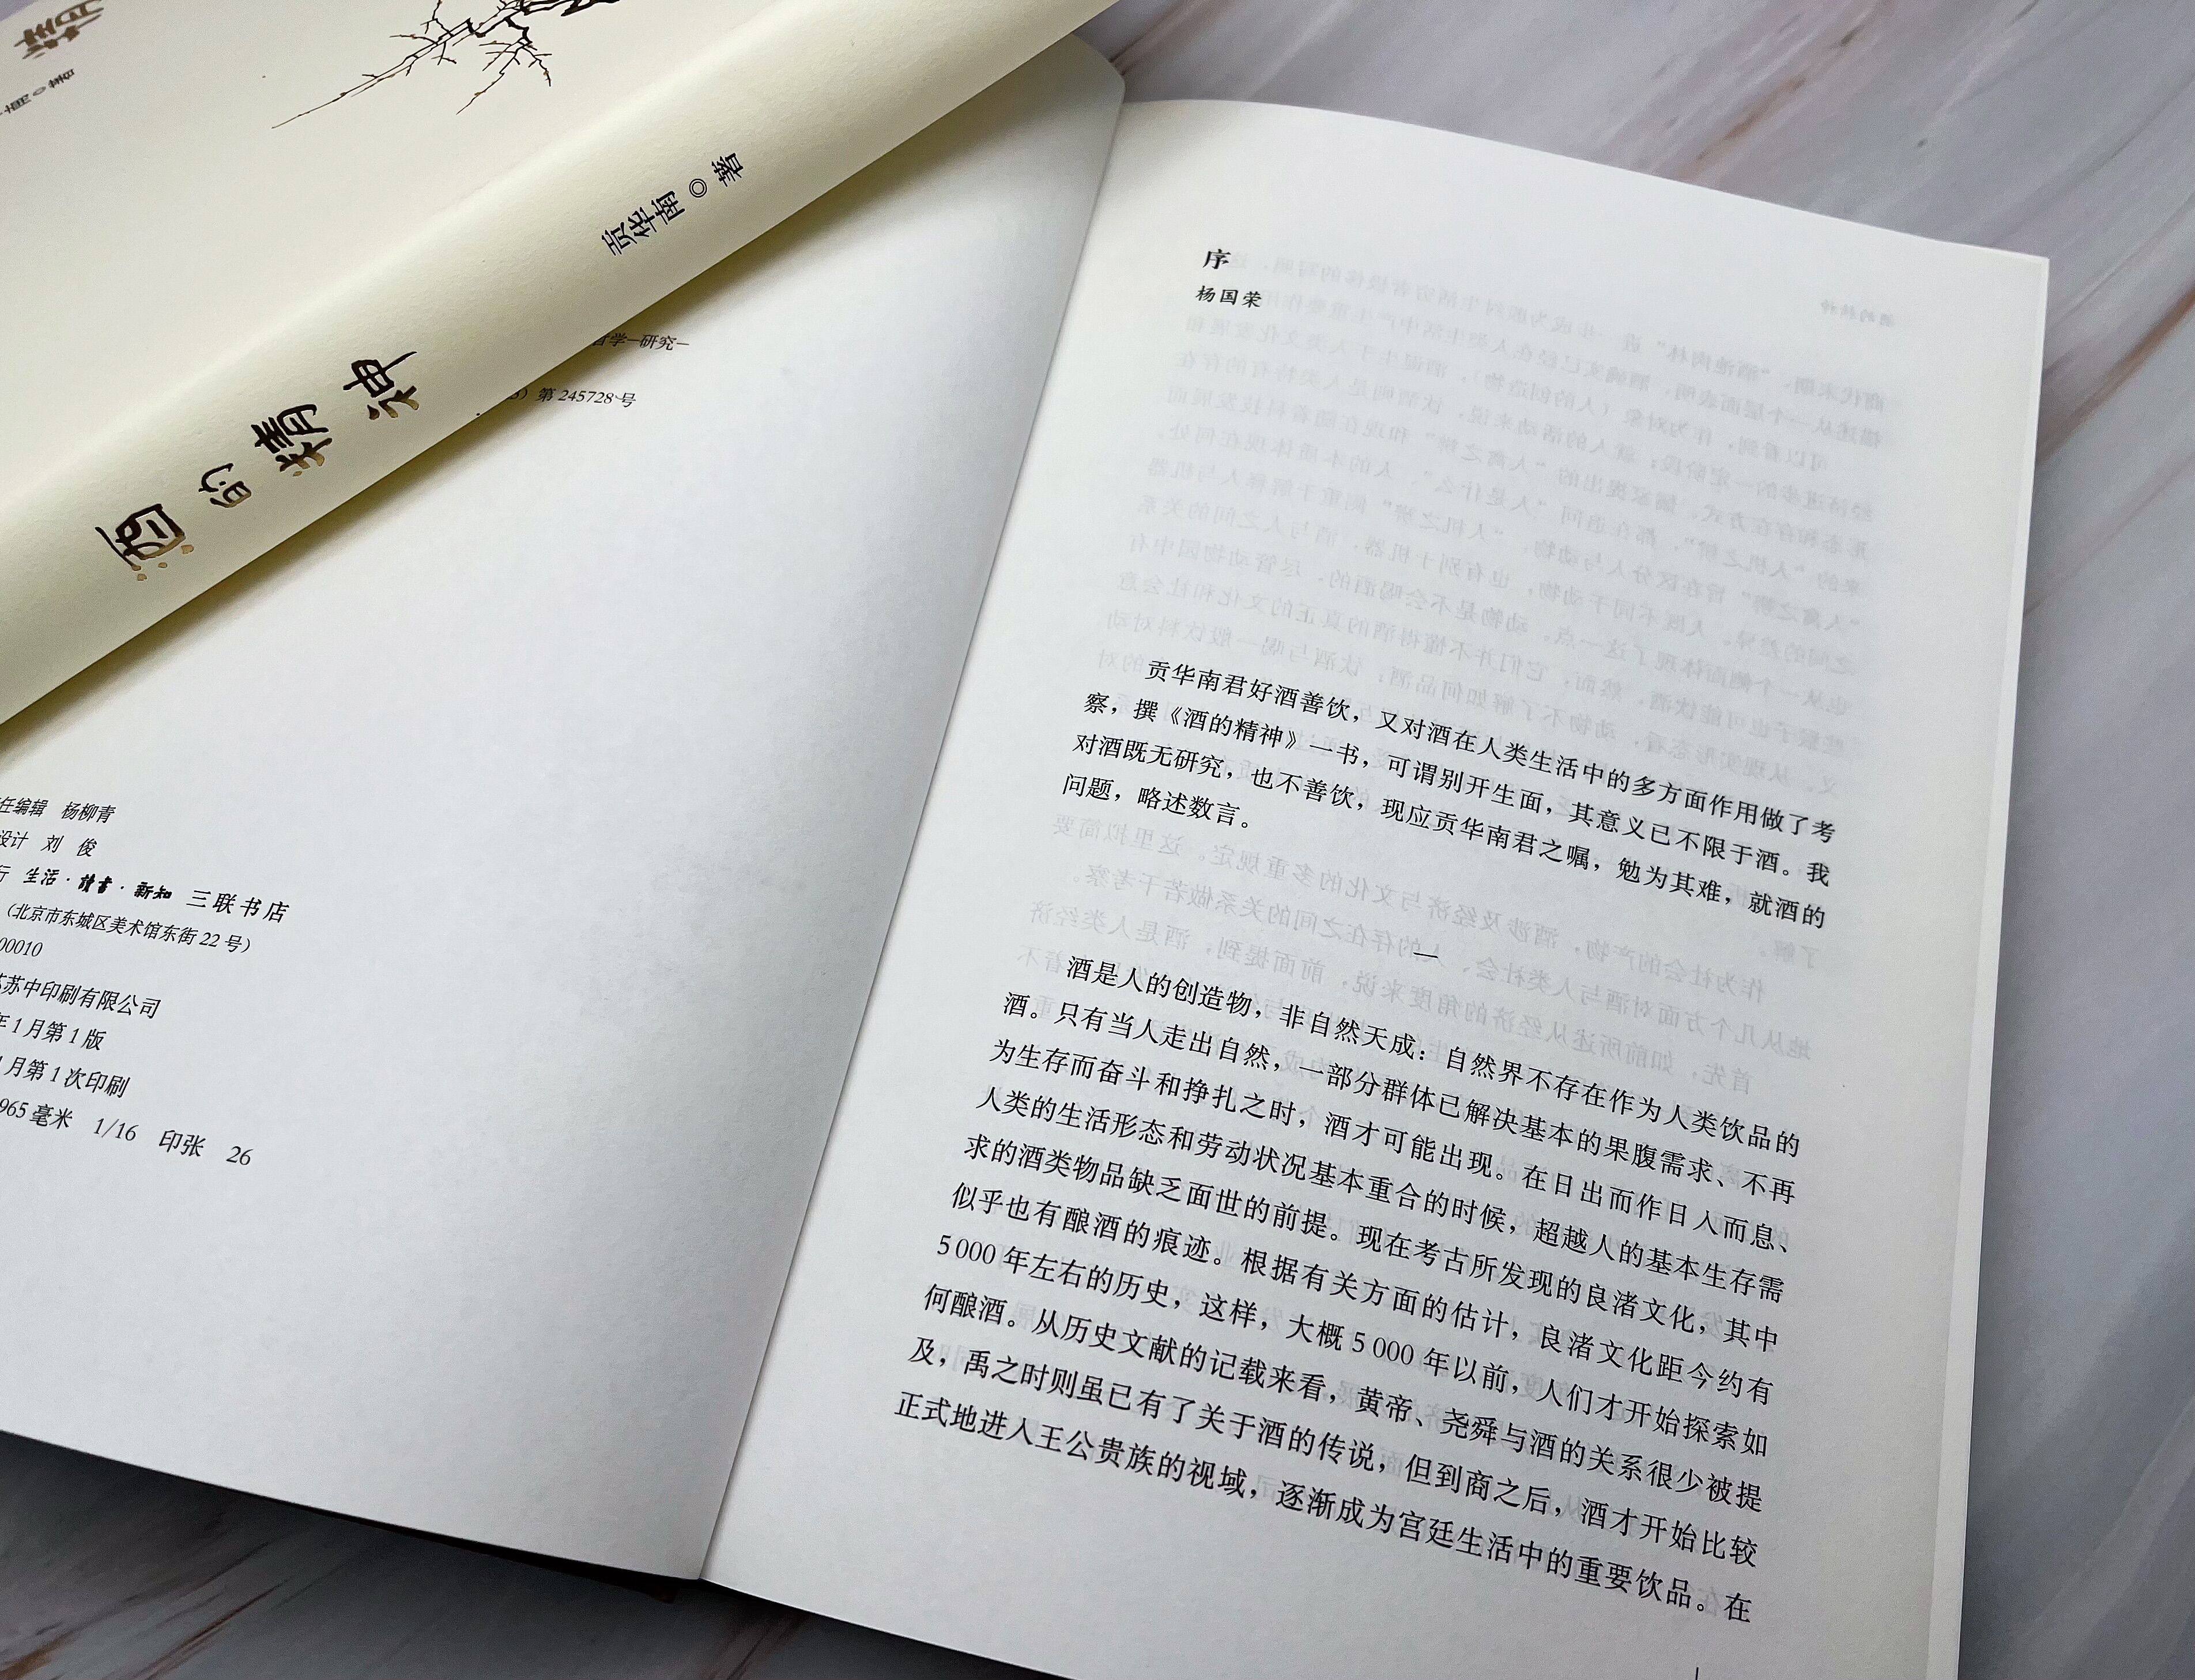 酒的精神
贡华南◎著
哲学—研究—
第 245728 号
任编辑 杨柳青
设计 刘 俊
行 生活·讀書·新知 三联书店
（北京市东城区美术馆东街 22 号）
00010
苏中印刷有限公司
年 1 月第 1 版
月第 1 次印刷
965 毫米 1/16 印张 26
序
杨国荣
贡华南君好酒善饮，又对酒在人类生活中的多方面作用做了考
察，撰《酒的精神》一书，可谓别开生面，其意义已不限于酒。我
对酒既无研究，也不善饮，现应贡华南君之嘱，勉为其难，就酒的
问题，略述数言。
一
酒是人的创造物，非自然天成：自然界不存在作为人类饮品的
酒。只有当人走出自然，一部分群体已解决基本的果腹需求、不再
为生存而奋斗和挣扎之时，酒才可能出现。在日出而作日入而息、
人类的生活形态和劳动状况基本重合的时候，超越人的基本生存需
求的酒类物品缺乏面世的前提。现在考古所发现的良渚文化，其中
似乎也有酿酒的痕迹。根据有关方面的估计，良渚文化距今约有
5 000 年左右的历史，这样，大概 5 000 年以前，人们才开始探索如
何酿酒。从历史文献的记载来看，黄帝、尧舜与酒的关系很少被提
及，禹之时则虽已有了关于酒的传说，但到商之后，酒才开始比较
正式地进入王公贵族的视域，逐渐成为宫廷生活中的重要饮品。在